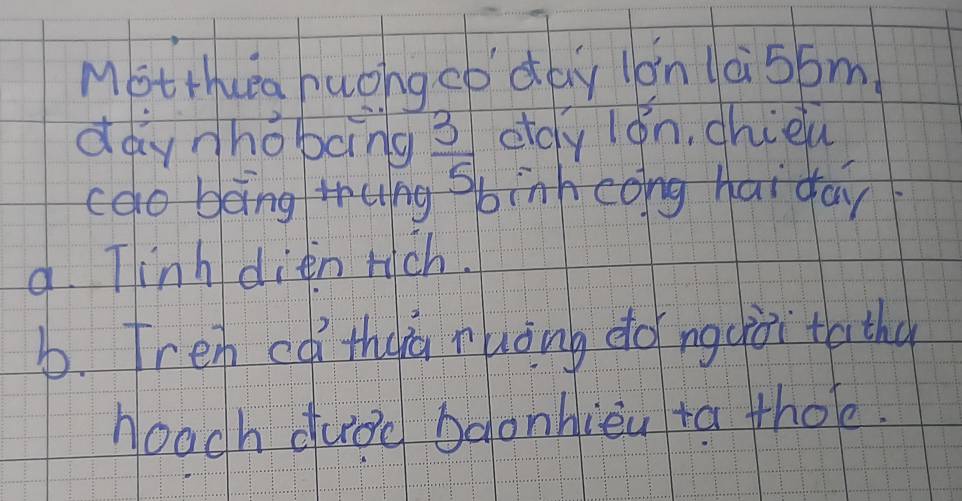 Một thửa ruộng có đáy lớn là 55m,
đáy nhỏ bằng 3/5 đáy lớn, chiều
cao bằng trung bình cộng hai đáy.
a. Tính diện tích.
b. Trên cả thửa ruộng đó người ta thu
hoạch được bao nhiêu tạ thóc.